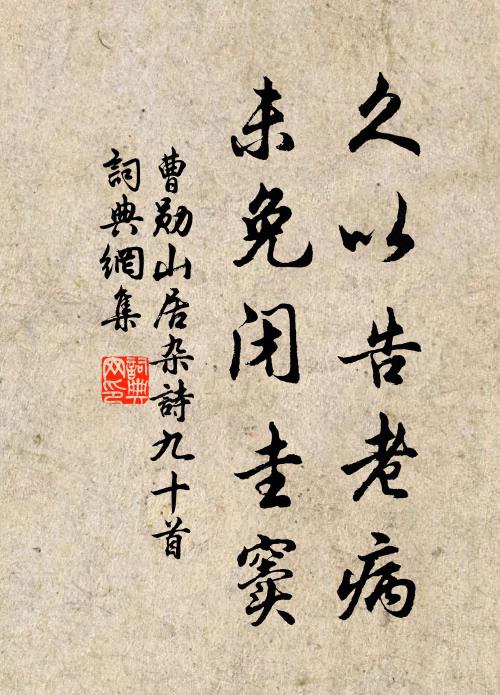 久以告老病
未免闭圭窦
曹勋山居杂詩九十首
詞典網集
詞典
网印